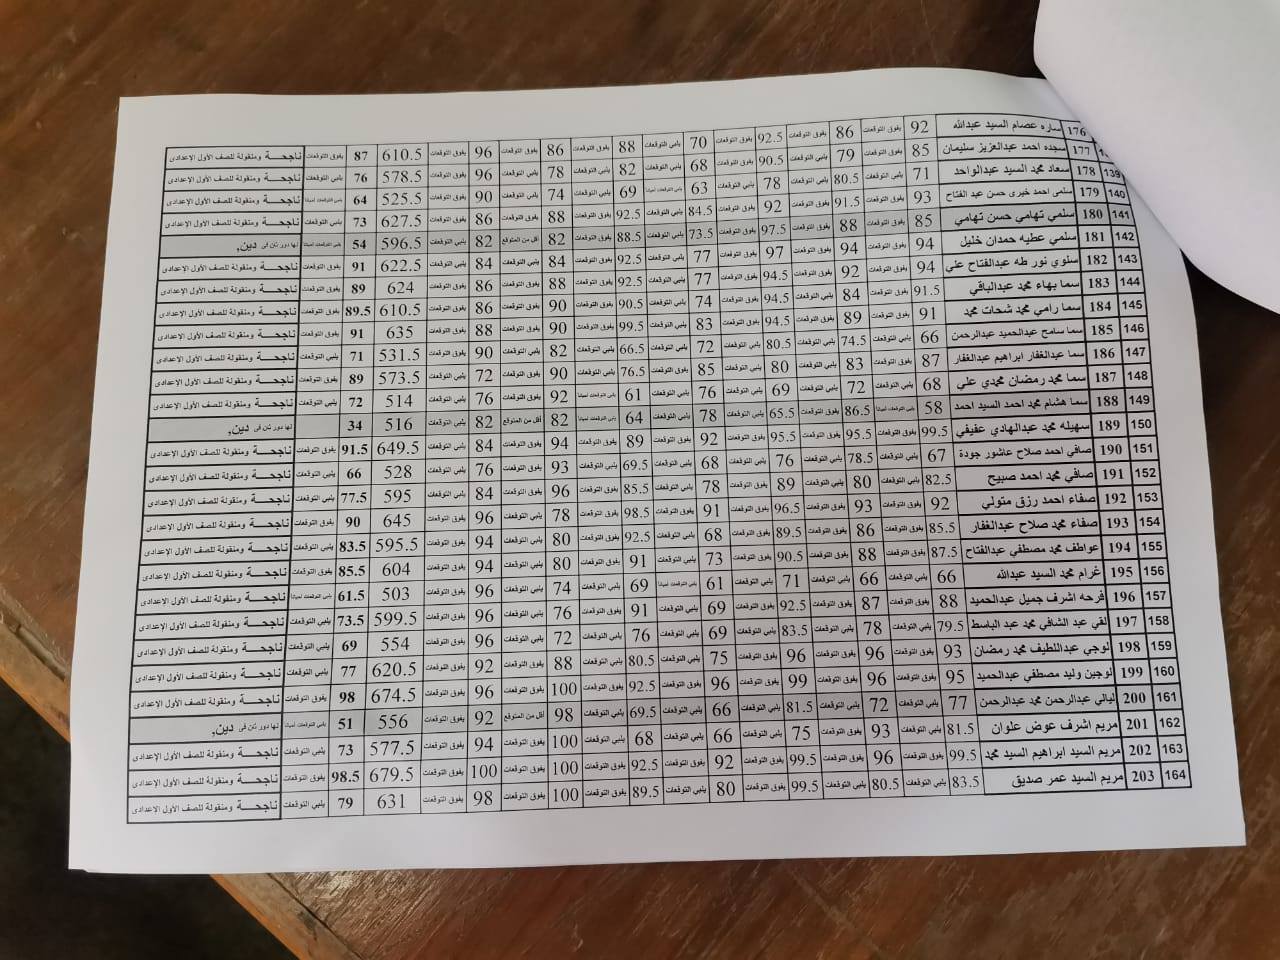 176 ساره عصام السيد عبدالله 92 يفوق التوقعات 86 يفوق التوقعات 92.5 يفوق التوقعات 70 يلبي التوقعات 88 يفوق التوقعات 86 يفوق التوقعات 96 يفوق التوقعات 610.5 87 يفوق التوقعات ناجحة ومنقولة للصف الأول الإعدادى
177 سجده احمد عبدالعزيز سليمان 85 يفوق التوقعات 79 يلبي التوقعات 90.5 يفوق التوقعات 68 يلبي التوقعات 82 يلبي التوقعات 78 يلبي التوقعات 96 يفوق التوقعات 578.5 76 يلبي التوقعات ناجحة ومنقولة للصف الأول الإعدادى
139 178 سعاد محمد السيد عبدالواحد 71 يلبي التوقعات 80.5 يلبي التوقعات 78 يلبي التوقعات 63 69 يلبي التوقعات 74 يلبي التوقعات 90 يفوق التوقعات 525.5 64 ناجحة ومنقولة للصف الأول الإعدادى
140 179 سلمى احمد خيرى حسن عبد الفتاح 93 يفوق التوقعات 91.5 يفوق التوقعات 92 يفوق التوقعات 84.5 يلبي التوقعات 92.5 يفوق التوقعات 88 يفوق التوقعات 86 يفوق التوقعات 627.5 73 يلبي التوقعات ناجحة ومنقولة للصف الأول الإعدادى
141 180 سلمي تهامي حسن تهامي 85 يفوق التوقعات 88 يفوق التوقعات 97.5 يفوق التوقعات 73.5 يلبي التوقعات 88.5 يفوق التوقعات 82 أقل من المتوقع 82 يلبي التوقعات 596.5 54 لها دور ثان فى دين,
142 181 سلمي عطيه حمدان خليل 94 يفوق التوقعات 94 يفوق التوقعات 97 يفوق التوقعات 77 يلبي التوقعات 92.5 يفوق التوقعات 84 يلبي التوقعات 84 يلبي التوقعات 622.5 91 يفوق التوقعات ناجحة ومنقولة للصف الأول الإعدادى
143 182 سلوي نور طه عبدالفتاح علي 94 يفوق التوقعات 92 يفوق التوقعات 94.5 يفوق التوقعات 77 يلبي التوقعات 92.5 يفوق التوقعات 88 يفوق التوقعات 86 يفوق التوقعات 624 89 يفوق التوقعات ناجحة ومنقولة للصف الأول الإعدادى
144 183 سما بهاء محمد عبدالباقي 91.5 يفوق التوقعات 84 يلبي التوقعات 94.5 يفوق التوقعات 74 يلبي التوقعات 90.5 يفوق التوقعات 90 يفوق التوقعات 86 يفوق التوقعات 610.5 89.5 يفوق التوقعات ناجحة ومنقولة للصف الأول الإعدادى
145 184 سما رامي محمد شحات محمد 91 يفوق التوقعات 89 يفوق التوقعات 94.5 يفوق التوقعات 83 يلبي التوقعات 99.5 يفوق التوقعات 90 يفوق التوقعات 88 يفوق التوقعات 635 91 يفوق التوقعات ناجحة ومنقولة للصف الأول الإعدادى
146 185 سما سامح عبدالحميد عبدالرحمن 66 يلبي التوقعات 74.5 يلبي التوقعات 80.5 يلبي التوقعات 72 يلبي التوقعات 66.5 يلبي التوقعات 82 يلبي التوقعات 90 يفوق التوقعات 531.5 71 يلبي التوقعات ناجحة ومنقولة للصف الأول الإعدادى
147 186 سما عبدالغفار ابراهيم عبدالغفار 87 يفوق التوقعات 83 يلبي التوقعات 80 يلبي التوقعات 85 يفوق التوقعات 76.5 يلبي التوقعات 90 يفوق التوقعات 72 يلبي التوقعات 573.5 89 يفوق التوقعات ناجحة ومنقولة للصف الأول الإعدادى
148 187 سما محمد رمضان محمدي علي 68 يلبي التوقعات 72 يلبي التوقعات 69 يلبي التوقعات 76 يلبي التوقعات 61 92 يفوق التوقعات 76 يلبي التوقعات 514 72 يلبي التوقعات ناجحة ومنقولة للصف الأول الإعدادى
149 188 سما هشام محمد احمد السيد احمد 58 86.5 يفوق التوقعات 65.5 يلبي التوقعات 78 يلبي التوقعات 64 82 أقل من المتوقع 82 يلبي التوقعات 516 34 لها دور ثان فى دين,
150 189 سهيله محمد عبدالهادي عفيفي 99.5 يفوق التوقعات 95.5 يفوق التوقعات 95.5 يفوق التوقعات 92 يفوق التوقعات 89 يفوق التوقعات 94 يفوق التوقعات 84 يلبي التوقعات 649.5 91.5 يفوق التوقعات ناجحة ومنقولة للصف الأول الإعدادى
151 190 صافي احمد صلاح عاشور جودة 67 يلبي التوقعات 78.5 يلبي التوقعات 76 يلبي التوقعات 68 يلبي التوقعات 69.5 يلبي التوقعات 93 يفوق التوقعات 76 يلبي التوقعات 528 66 يلبي التوقعات ناجحة ومنقولة للصف الأول الإعدادى
152 191 صافي محمد احمد صبيح 82.5 يلبي التوقعات 80 يلبي التوقعات 89 يفوق التوقعات 78 يلبي التوقعات 85.5 يفوق التوقعات 96 يفوق التوقعات 84 يلبي التوقعات 595 77.5 يلبي التوقعات ناجحة ومنقولة للصف الأول الإعدادى
153 192 صفاء احمد رزق متولي 92 يفوق التوقعات 93 يفوق التوقعات 96.5 يفوق التوقعات 91 يفوق التوقعات 98.5 يفوق التوقعات 78 يلبي التوقعات 96 يفوق التوقعات 645 90 يفوق التوقعات ناجحة ومنقولة للصف الأول الإعدادى
154 193 صفاء محمد صلاح عبدالغفار 85.5 يفوق التوقعات 86 يفوق التوقعات 89.5 يفوق التوقعات 68 يلبي التوقعات 92.5 يفوق التوقعات 80 يلبي التوقعات 94 يفوق التوقعات 595.5 83.5 يلبي التوقعات ناجحة ومنقولة للصف الأول الإعدادى
155 194 عواطف محمد مصطفي عبدالفتاح 87.5 يفوق التوقعات 88 يفوق التوقعات 90.5 يفوق التوقعات 73 يلبي التوقعات 91 يفوق التوقعات 80 يلبي التوقعات 94 يفوق التوقعات 604 85.5 يفوق التوقعات ناجحة ومنقولة للصف الأول الإعدادى
156 195 غرام محمد السيد عبدالله 66 يلبي التوقعات 66 يلبي التوقعات 71 يلبي التوقعات 61 69 يلبي التوقعات 74 يلبي التوقعات 96 يفوق التوقعات 503 61.5 ناجحة ومنقولة للصف الأول الإعدادى
157 196 فرحه اشرف جميل عبدالحميد 88 يفوق التوقعات 87 يفوق التوقعات 92.5 يفوق التوقعات 69 يلبي التوقعات 91 يفوق التوقعات 76 يلبي التوقعات 96 يفوق التوقعات 599.5 73.5 يلبي التوقعات ناجحة ومنقولة للصف الأول الإعدادى
158 197 لقي عبد الشافي محمد عبد الباسط 79.5 يلبي التوقعات 78 يلبي التوقعات 83.5 يلبي التوقعات 69 يلبي التوقعات 76 يلبي التوقعات 72 يلبي التوقعات 96 يفوق التوقعات 554 69 يلبي التوقعات ناجحة ومنقولة للصف الأول الإعدادى
159 198 لوجي عبداللطيف محمد رمضان 93 يفوق التوقعات 96 يفوق التوقعات 96 يفوق التوقعات 75 يلبي التوقعات 80.5 يلبي التوقعات 88 يفوق التوقعات 92 يفوق التوقعات 620.5 77 يلبي التوقعات ناجحة ومنقولة للصف الأول الإعدادى
160 199 لوجين وليد مصطفي عبدالحميد 95 يفوق التوقعات 96 يفوق التوقعات 99 يفوق التوقعات 96 يفوق التوقعات 92.5 يفوق التوقعات 100 يفوق التوقعات 96 يفوق التوقعات 674.5 98 يفوق التوقعات ناجحة ومنقولة للصف الأول الإعدادى
161 200 ليالي عبدالرحمن محمد عبدالرحمن 77 يلبي التوقعات 72 يلبي التوقعات 81.5 يلبي التوقعات 66 يلبي التوقعات 69.5 يلبي التوقعات 98 أقل من المتوقع 92 يفوق التوقعات 556 51 لها دور ثان فى دين,
162 201 مريم اشرف عوض علوان 81.5 يلبي التوقعات 93 يفوق التوقعات 75 يلبي التوقعات 66 يلبي التوقعات 68 يلبي التوقعات 100 يفوق التوقعات 94 يفوق التوقعات 577.5 73 يلبي التوقعات ناجحة ومنقولة للصف الأول الإعدادى
163 202 مريم السيد ابراهيم السيد محمد 99.5 يفوق التوقعات 96 يفوق التوقعات 99.5 يفوق التوقعات 92 يفوق التوقعات 92.5 يفوق التوقعات 100 يفوق التوقعات 100 يفوق التوقعات 679.5 98.5 يفوق التوقعات ناجحة ومنقولة للصف الأول الإعدادى
164 203 مريم السيد عمر صديق 83.5 يلبي التوقعات 80.5 يلبي التوقعات 99.5 يفوق التوقعات 80 يلبي التوقعات 89.5 يفوق التوقعات 100 يفوق التوقعات 98 يفوق التوقعات 631 79 يلبي التوقعات ناجحة ومنقولة للصف الأول الإعدادى